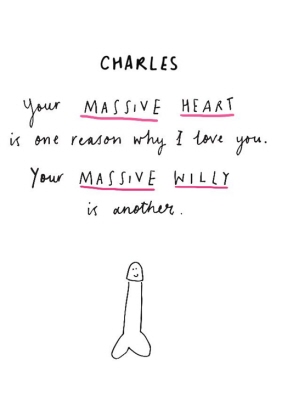 CHARLES
Your MASSIVE HEART
is one reason why I love you.
Your MASSIVE WILLY
is another.